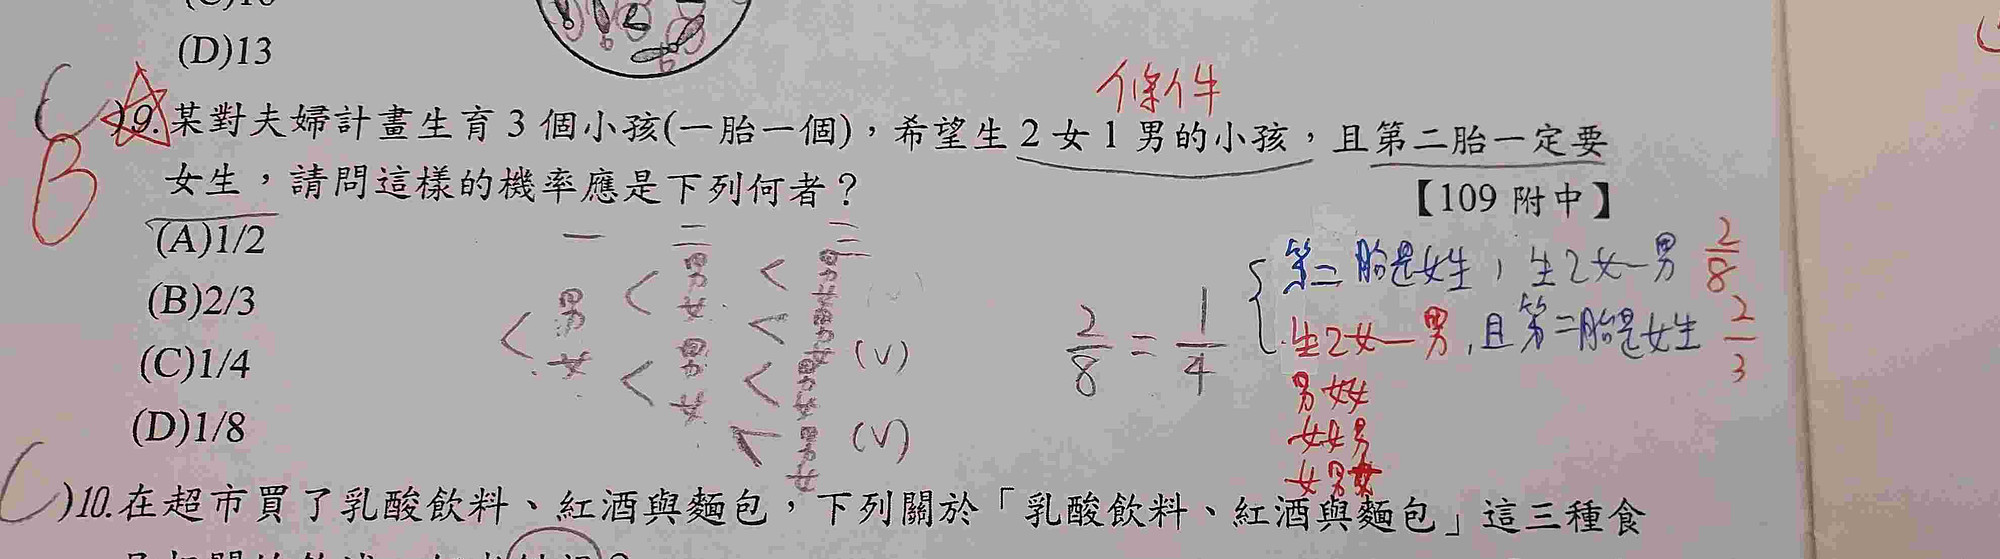 (D)13
條件
C )9.某對夫婦計畫生育 3 個小孩(一胎一個)，希望生 2 女 1 男的小孩，且第二胎一定要
B
女生，請問這樣的機率應是下列何者？
【109 附中】
(A)1/2
(B)2/3
(C)1/4
(D)1/8
一 二 三
男 女
男 女 男 女
男 女 男 女 (V) 男 女 男 女 (V)
2/8 = 1/4
第二胎是女生，生2女一男 2/8
生2女一男，且第二胎是女生 2/3
男女女
女女男
女男女
( )10.在超市買了乳酸飲料、紅酒與麵包，下列關於「乳酸飲料、紅酒與麵包」這三種食